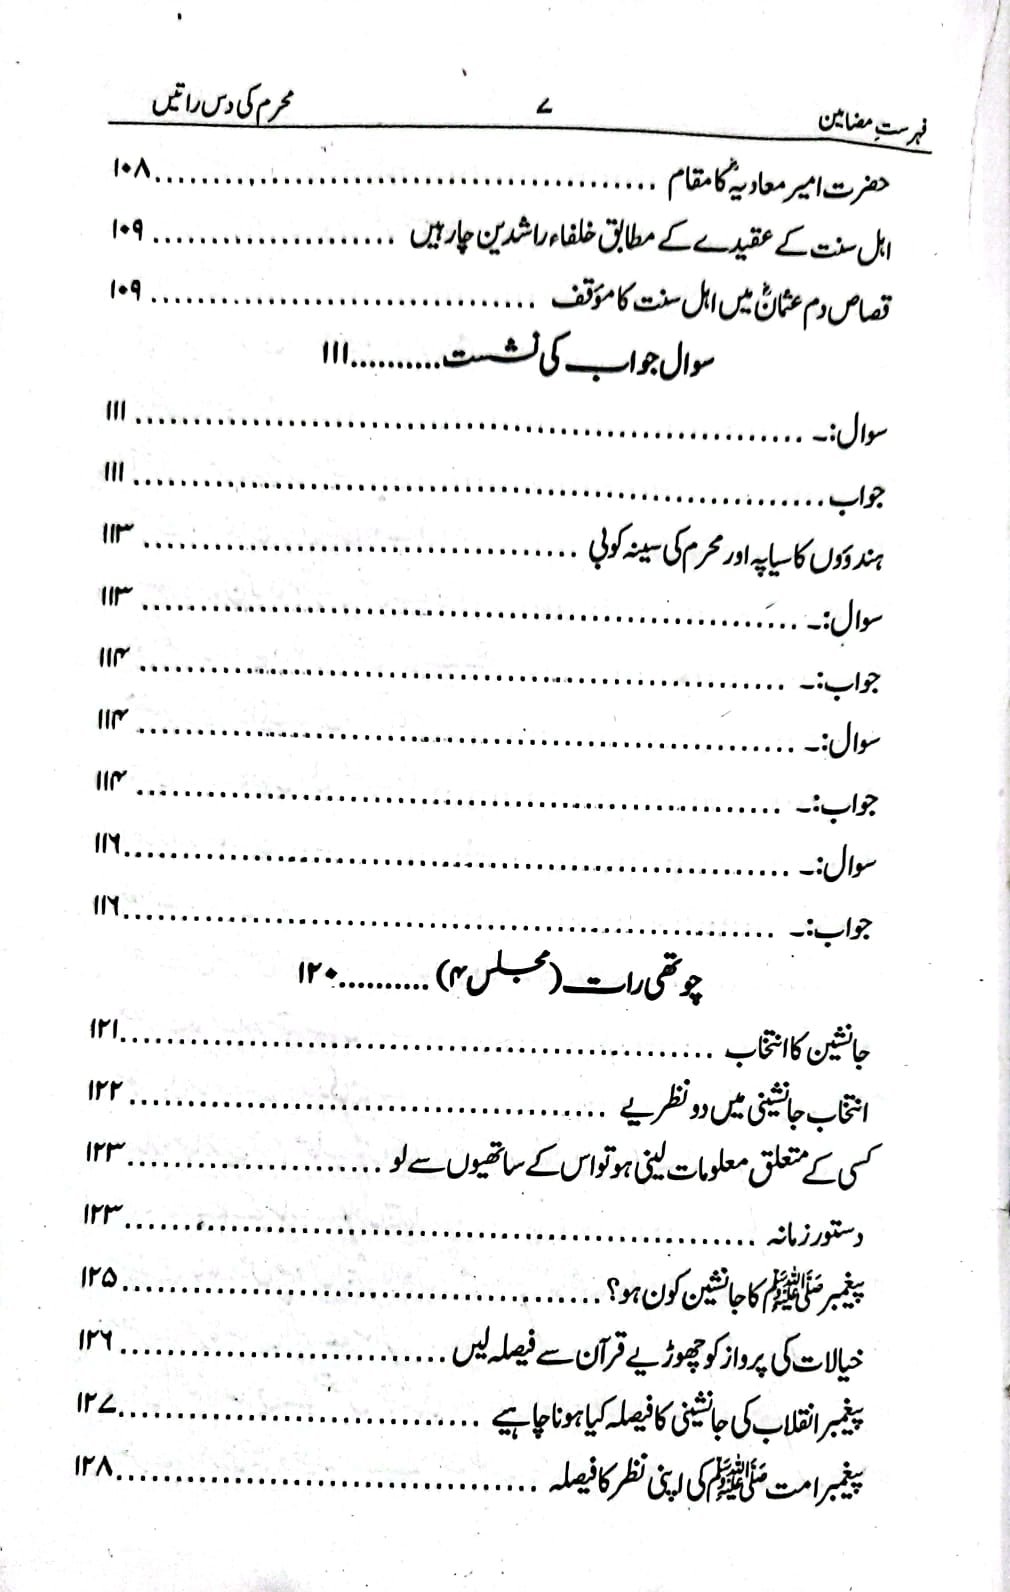 فہرستِ مضامین ۷ محرم کی دس راتیں
حضرت امیر معاویہؓ کا مقام ........ ۱۰۸
اہل سنت کے عقیدے کے مطابق خلفاء راشدین چار ہیں ........ ۱۰۹
قصاص دم عثمانؓ میں اہل سنت کا مؤقف ........ ۱۰۹
سوال جواب کی نشست .......... ۱۱۱
سوال:۔ ........ ۱۱۱
جواب ........ ۱۱۱
ہندوؤں کا سیاپہ اور محرم کی سینہ کوبی ........ ۱۱۳
سوال:۔ ........ ۱۱۳
جواب:۔ ........ ۱۱۴
سوال:۔ ........ ۱۱۴
جواب:۔ ........ ۱۱۴
سوال:۔ ........ ۱۱۶
جواب:۔ ........ ۱۱۶
چوتھی رات (مجلس ۴) .......... ۱۲۰
جانشین کا انتخاب ........ ۱۲۱
انتخاب جانشینی میں دو نظریے ........ ۱۲۲
کسی کے متعلق معلومات لینی ہو تو اس کے ساتھیوں سے لو ........ ۱۲۳
دستور زمانہ ........ ۱۲۳
پیغمبر ﷺ کا جانشین کون ہو؟ ........ ۱۲۵
خیالات کی پرواز کو چھوڑیے قرآن سے فیصلہ لیں ........ ۱۲۶
پیغمبر انقلاب کی جانشینی کا فیصلہ کیا ہونا چاہیے ........ ۱۲۷
پیغمبر امت ﷺ کی اپنی نظر کا فیصلہ ........ ۱۲۸